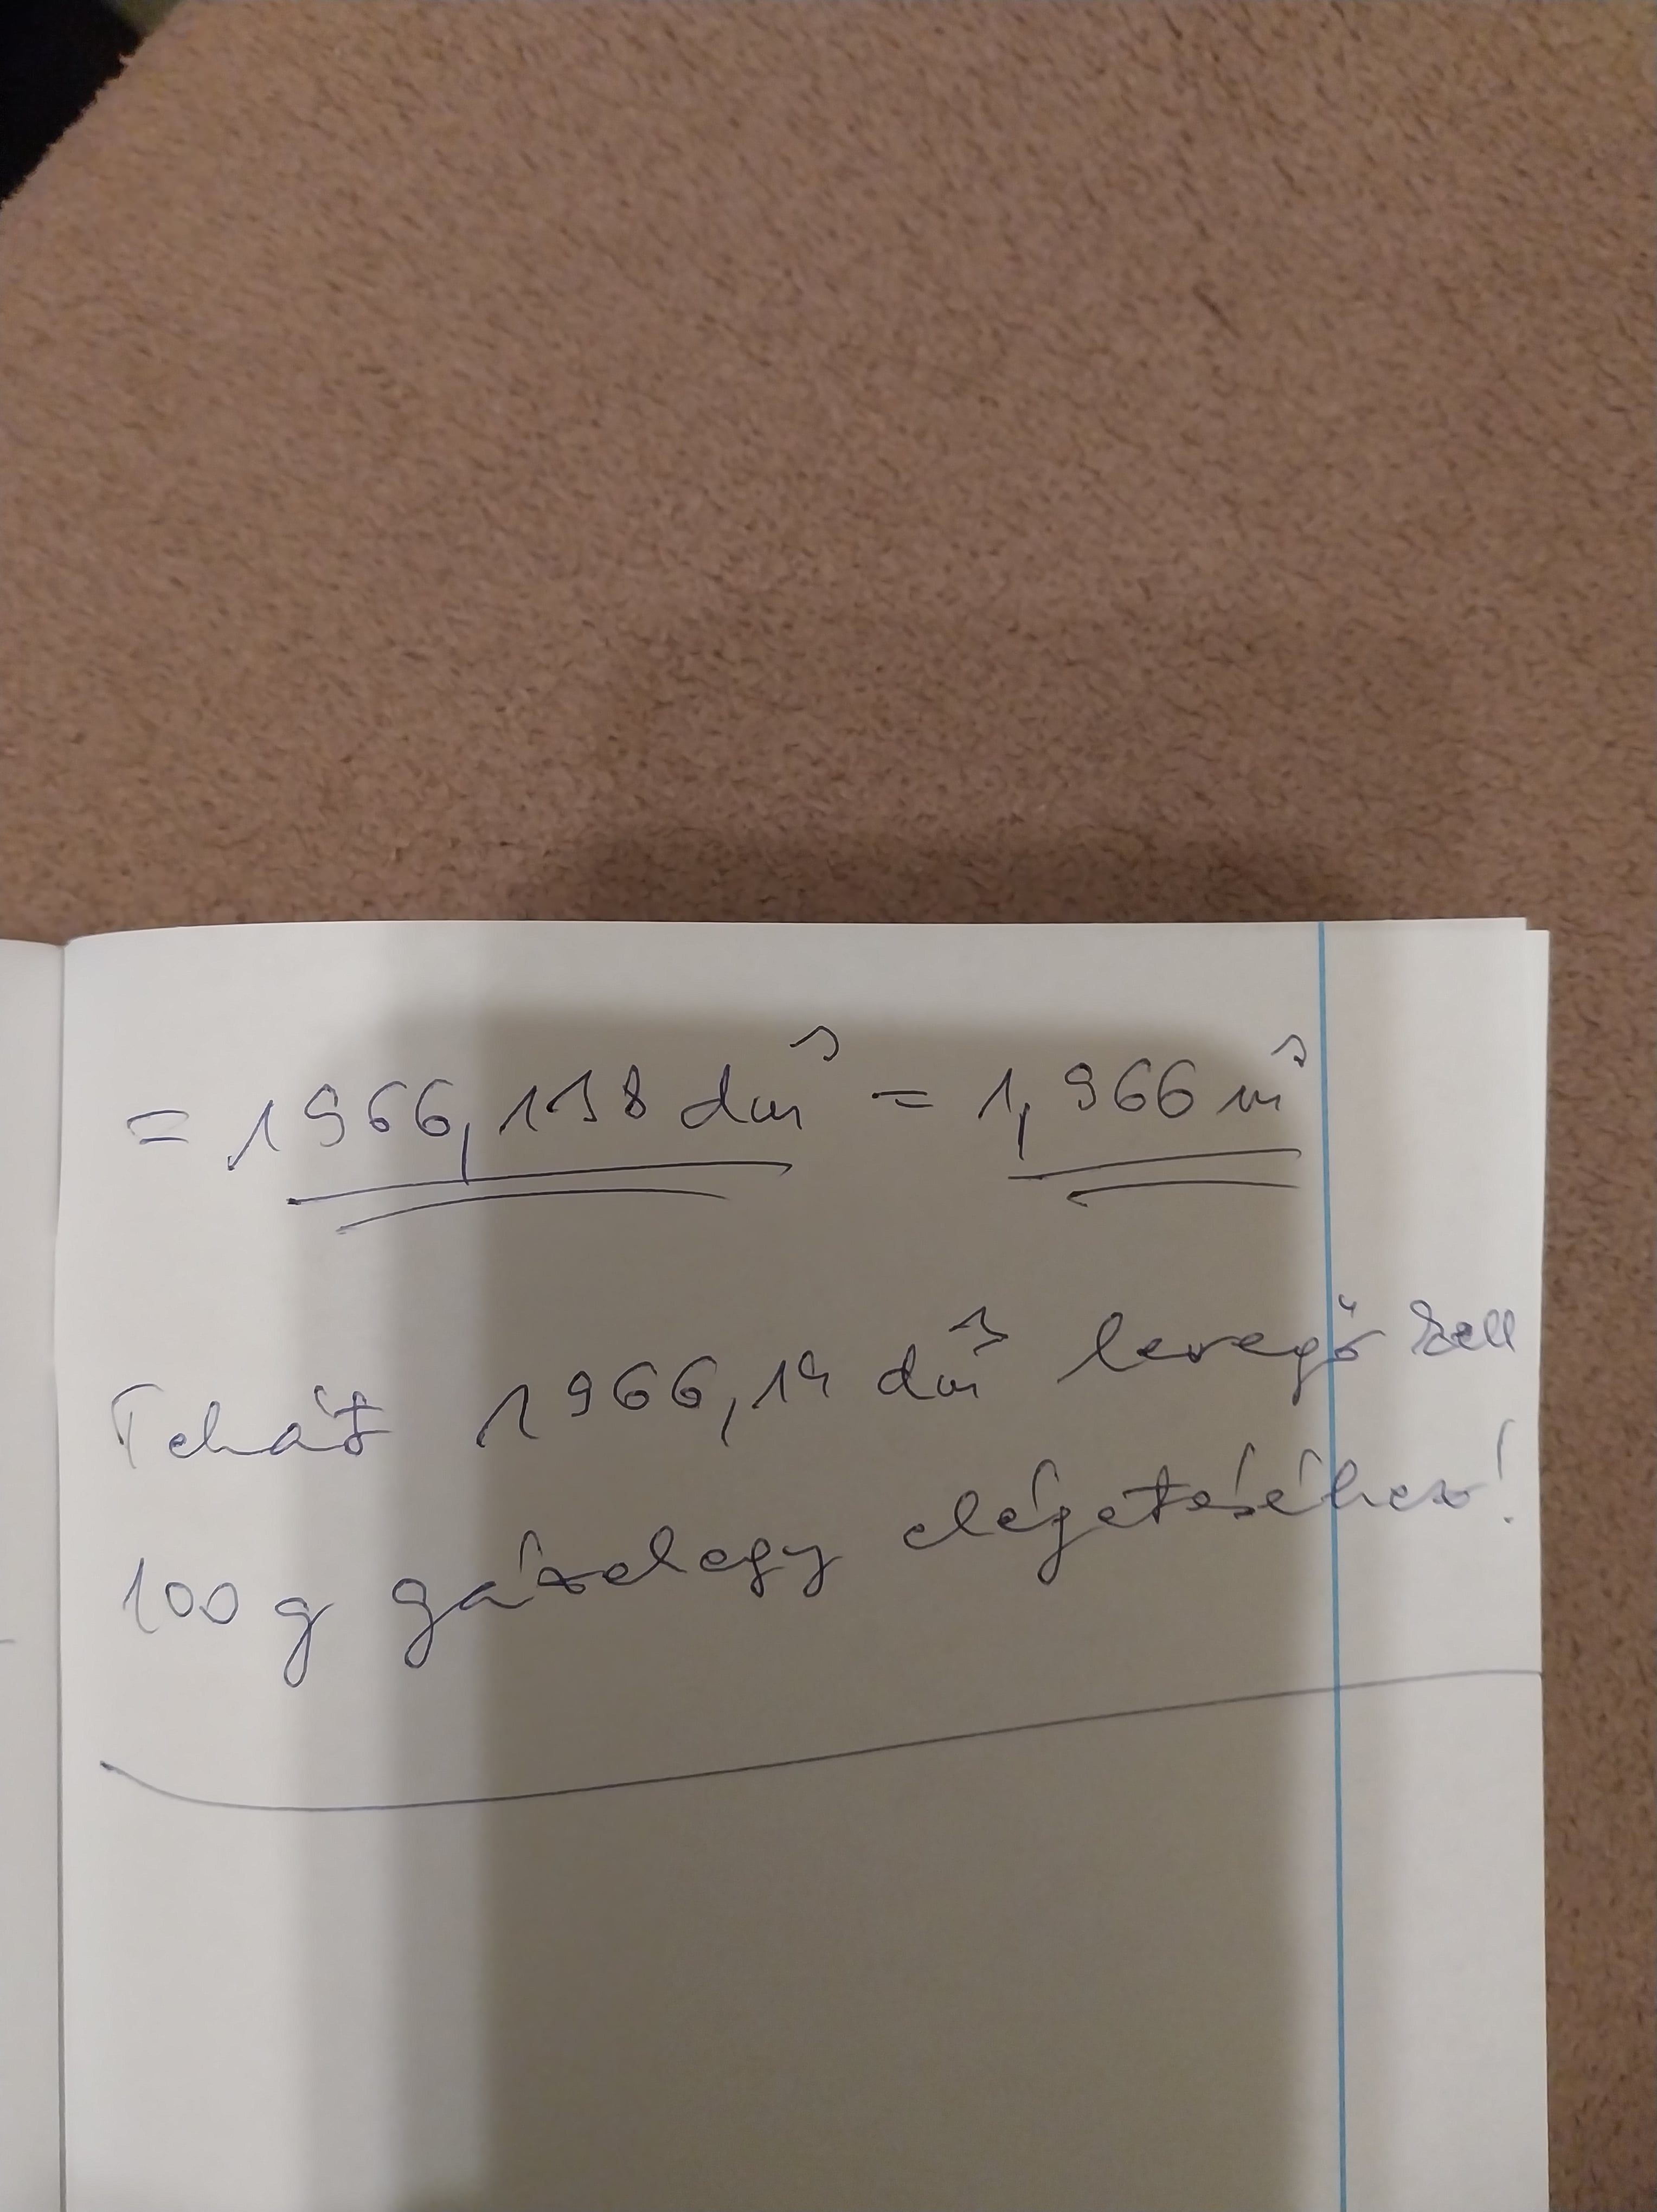 = 1966,138 dm³ = 1,966 m³
Tehát 1966,14 dm³ levegő kell
100 g gázelegy elégetéséhez!